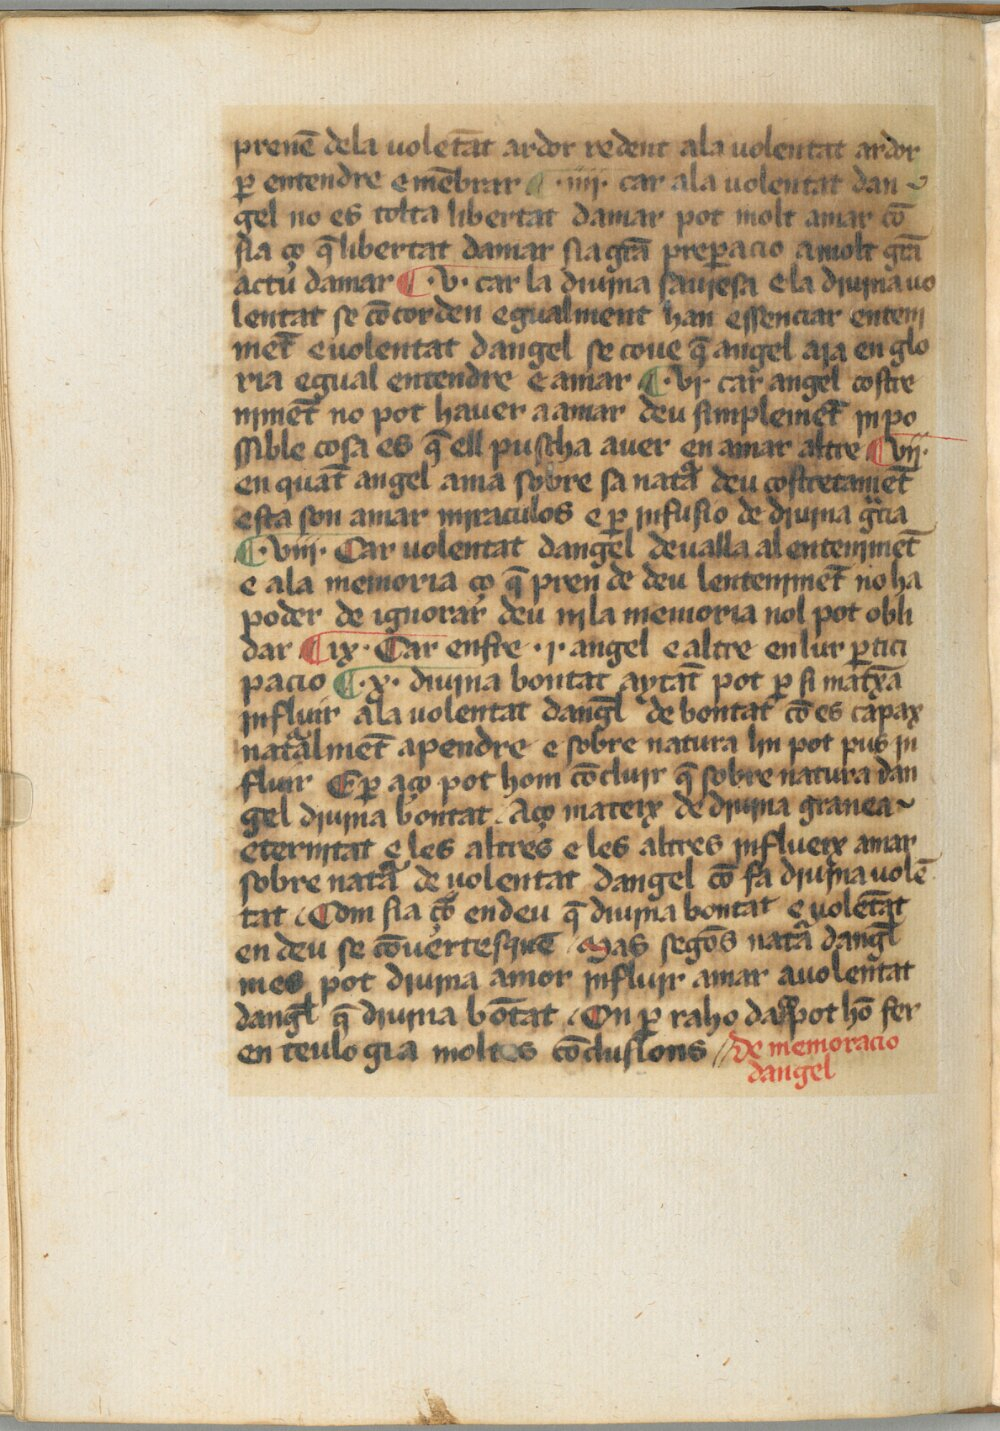 prenē dela uolētāt ardor redent ala uolentat ardor
ꝑ entendre e mēbrar ¶ ·iiij· car ala uolentat dan
gel no es tolta libertat damar pot molt amar cō
sia ço q̄ libertat damar sia grā prepacio a molt grā
actu damar ¶ ·v· car la diuina sauiesa e la diuina uo
lentat se cōcorden egualment han essenciar enteni
mēt e uolentat dangel se coue q̄ angel aia en glo
ria egual entendre e amar ¶ ·vi· car angel costre
nimēt no pot hauer a amar deu simplemēt inpo
ssible cosa es q̄ ell puscha auer en amar altre ¶ vij·
en quāt angel ama sobre sa natᵃ deu costretamēt
esta son amar miraculos e ꝑ infusio de diuina gᵃcia
¶ ·viii· Car uolentat dangel deualla al entenimēt
e ala memoria ço q̄ pren de deu lentenimēt no ha
poder de ignorar deu ni la memoria nol pot obli
dar ¶ ix· Car enfre ·i· angel e altre en lur ꝑtici
pacio ¶ ·x· diuina bontat aytāt pot ꝑ si matxa
influir ala uolentat dangl̄ de bontat cō es capax
natᵃlmēt apendre e sobre natura lin pot pus in
fluir Eꝑ aço pot hom cōcluir q̄ sobre natura dan
gel diuina bontat. Aço mateix de diuina granea
eternitat e les altres e les altres influeix amar
sobre natᵃ de uolentat dangel cō fa diuina uolē
tat. Com sia çō en deu q̄ diuina bontat e uolētat
en deu se cōuertesquē. Mas segōs natᵃ dangl̄
mes pot diuina amor influir amar a uolentat
dangl̄ q̄ diuina bōtat. On ꝑ raho pot hō fer
en teulogia moltes cōclusions // de memoracio
dangel